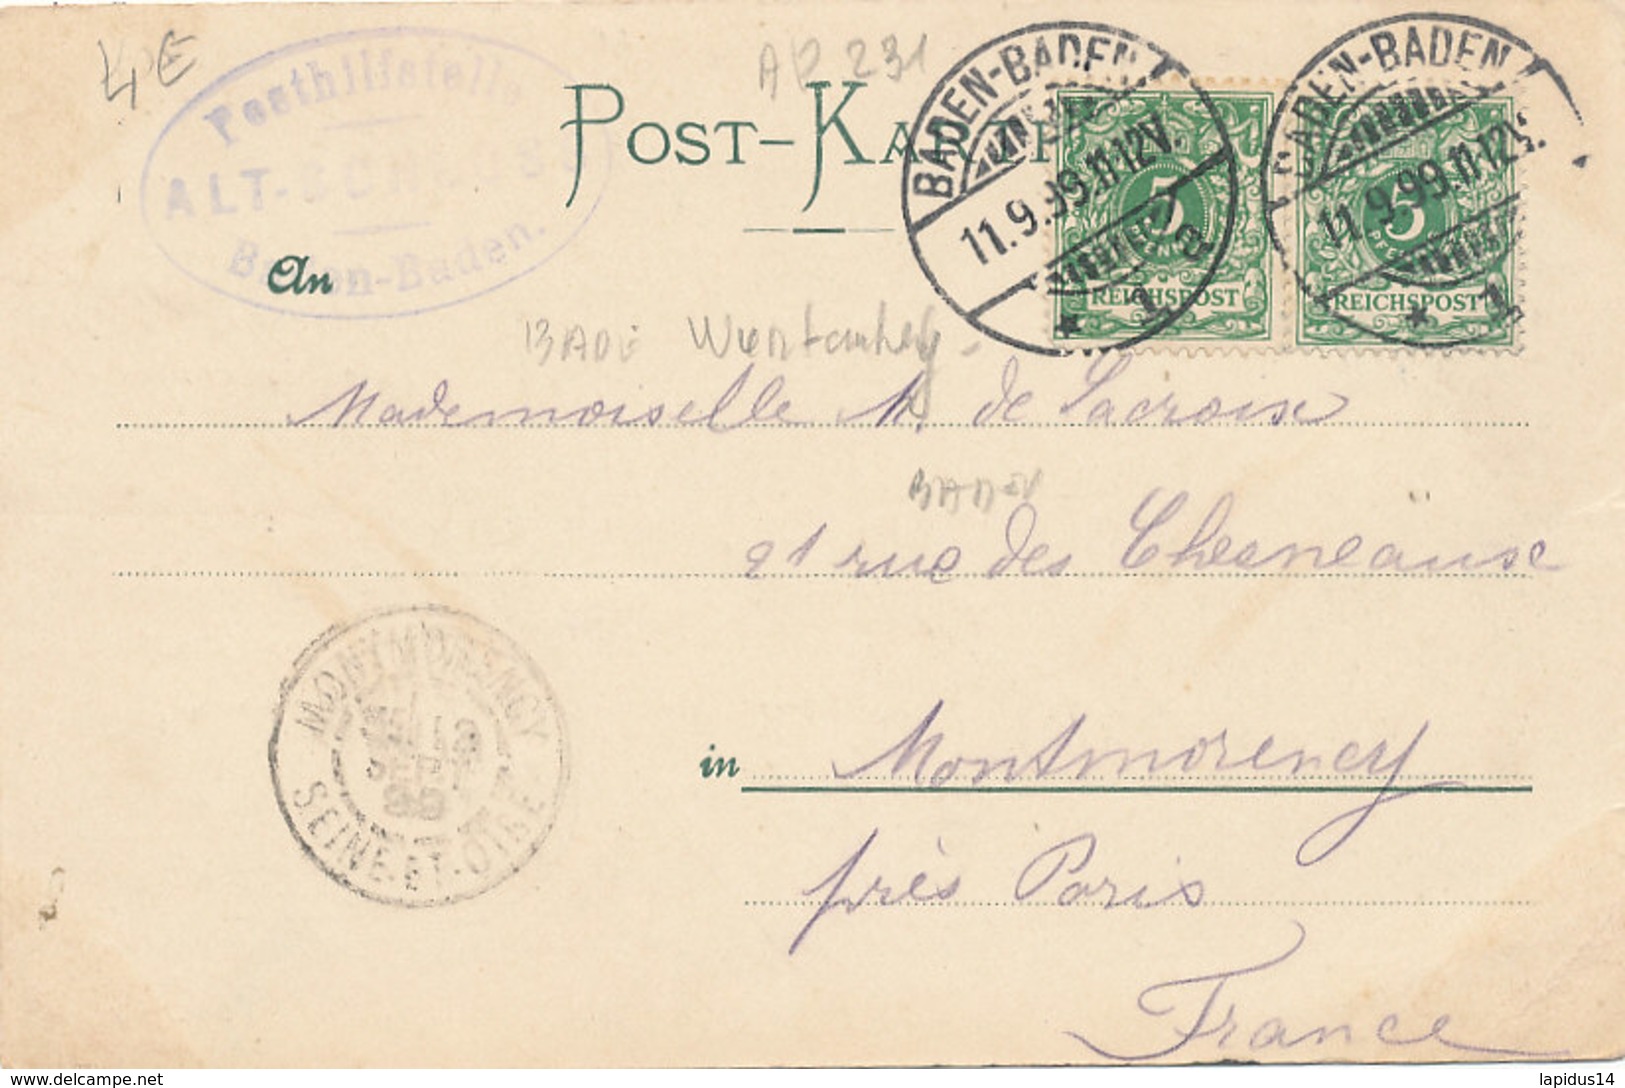 4€
AP 231
Posthilfstelle
ALT-SCHLOSS
Baden-Baden.
POST-KA
BADEN-BADEN
11.9.99.11-12V.
* 1.
BADEN-BADEN
11.9.99.11-12V.
* 1.
5
5
REICHSPOST
REICHSPOST
An
BADE Wurtemberg
Mademoiselle M. de Lacroix
BADEN
21 rue des Chesneaux
MONTMORENCY
SEPT
99
SEINE-ET-OISE
in Montmorency
près Paris
France
lapidus14